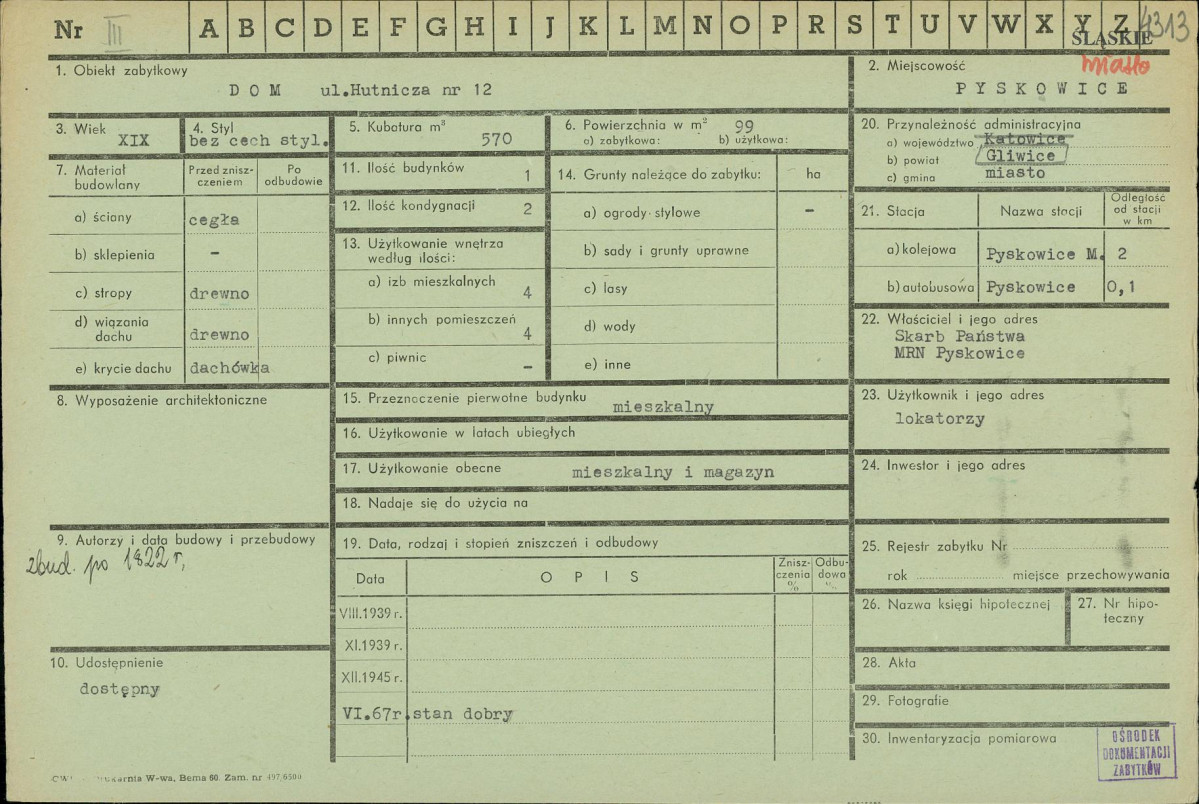 Nr III A B C D E F G H I J K L M N O P R S T U V W X Y Z 4313
ŚLĄSKIE
miasto
1. Obiekt zabytkowy
DOM ul.Hutnicza nr 12
2. Miejscowość
PYSKOWICE
3. Wiek
XIX
4. Styl
bez cech styl.
5. Kubatura m³
570
6. Powierzchnia w m² 99
a) zabytkowa: b) użytkowa:
20. Przynależność administracyjna
a) województwo Katowice
b) powiat Gliwice
c) gmina miasto
7. Materiał budowlany
Przed zniszczeniem
Po odbudowie
a) ściany cegła
b) sklepienia –
c) stropy drewno
d) wiązania dachu drewno
e) krycie dachu dachówka
11. Ilość budynków 1
12. Ilość kondygnacji 2
13. Użytkowanie wnętrza według ilości:
a) izb mieszkalnych 4
b) innych pomieszczeń 4
c) piwnic –
14. Grunty należące do zabytku: ha
a) ogrody stylowe –
b) sady i grunty uprawne
c) lasy
d) wody
e) inne
21. Stacja
Nazwa stacji
Odległość od stacji w km
a) kolejowa Pyskowice M. 2
b) autobusowa Pyskowice 0,1
22. Właściciel i jego adres
Skarb Państwa
MRN Pyskowice
8. Wyposażenie architektoniczne
15. Przeznaczenie pierwotne budynku mieszkalny
16. Użytkowanie w latach ubiegłych
17. Użytkowanie obecne mieszkalny i magazyn
18. Nadaje się do użycia na
23. Użytkownik i jego adres
lokatorzy
24. Inwestor i jego adres
9. Autorzy i data budowy i przebudowy
zbud. po 1822 r,
19. Data, rodzaj i stopień zniszczeń i odbudowy
Data OPIS Zniszczenia % Odbudowa %
VIII.1939 r.
XI.1939 r.
XII.1945 r.
VI.67r. stan dobry
25. Rejestr zabytku Nr
rok miejsce przechowywania
26. Nazwa księgi hipotecznej
27. Nr hipoteczny
10. Udostępnienie
dostępny
28. Akta
29. Fotografie
30. Inwentaryzacja pomiarowa
OŚRODEK
DOKUMENTACJI
ZABYTKÓW
W-wa, Bema 60. Zam. nr 497/6500